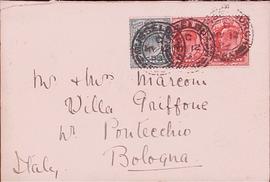 Mr & Mrs Marconi
Villa Griffone
nr Pontecchio
Bologna
Italy